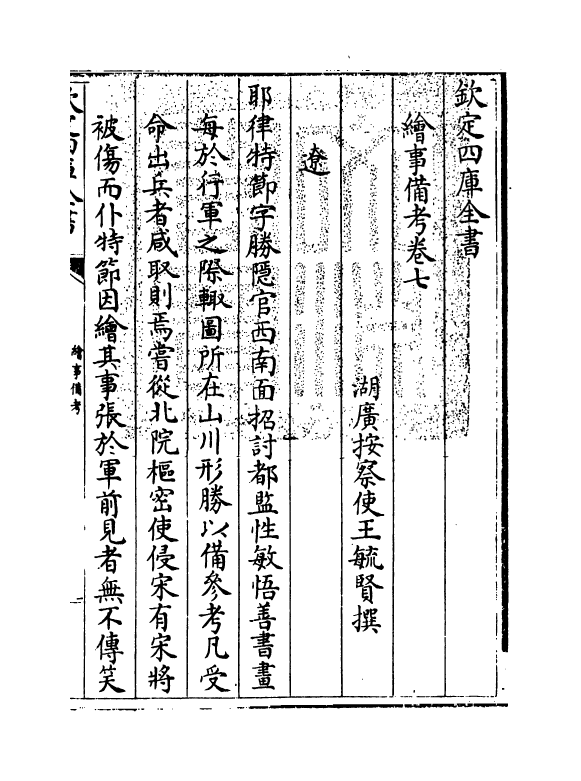 欽定四庫全書
繪事備考卷七
湖廣按察使王毓賢撰
遼
耶律特節字勝隱官西南面招討都監性敏悟善書畫
每於行軍之際輙圖所在山川形勝以備參考凡受
命出兵者咸取則焉嘗從北院樞密使侵宋有宋將
被傷而仆特節因繪其事張於軍前見者無不傳笑
欽定四庫全書
繪事備考